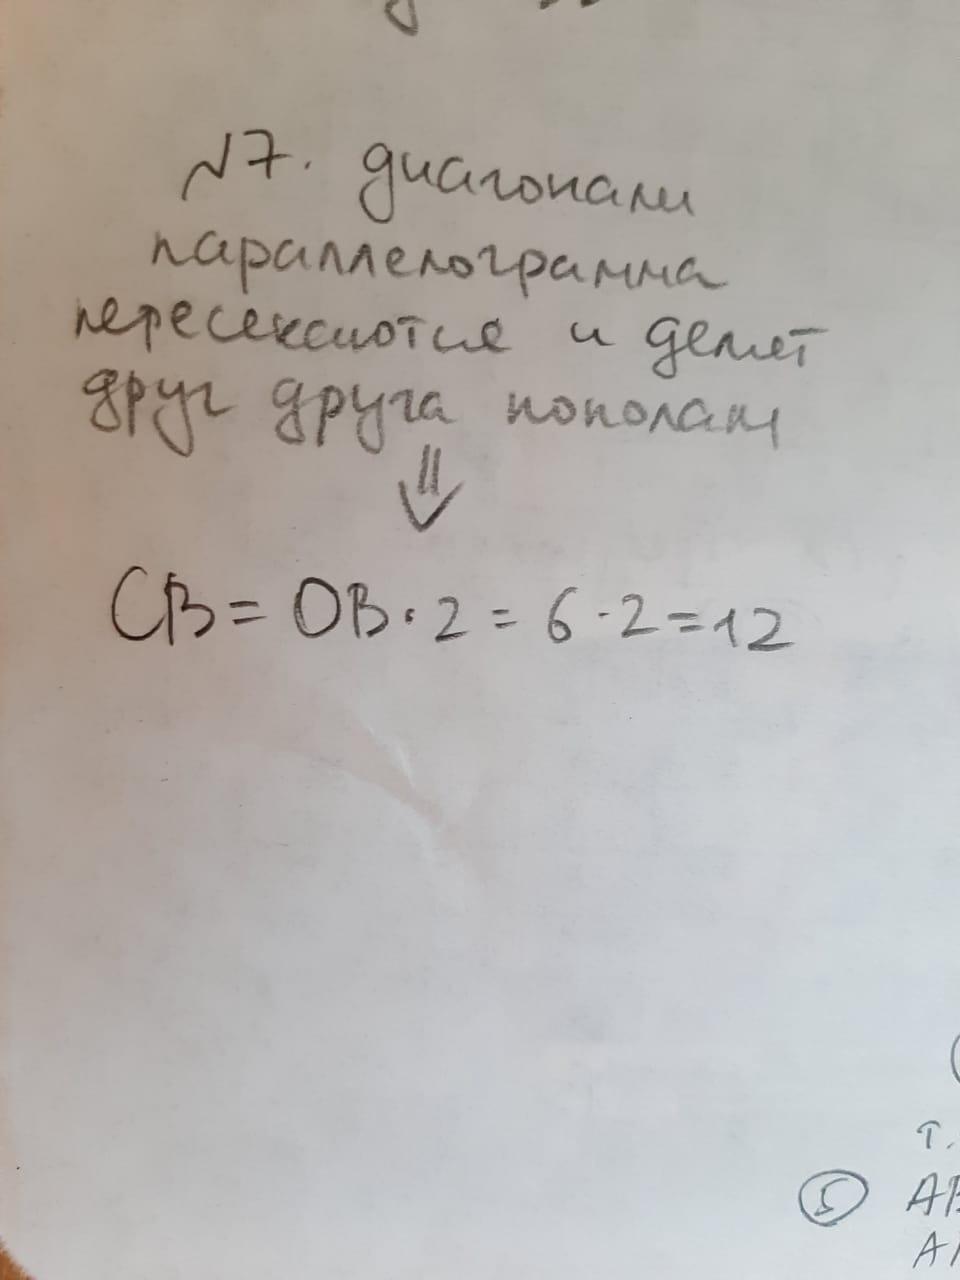 №7. диагонали
параллелограмма
пересекаются и делят
друг друга пополам
⇓
CB = OB · 2 = 6 · 2 = 12
т.
⑤ AB